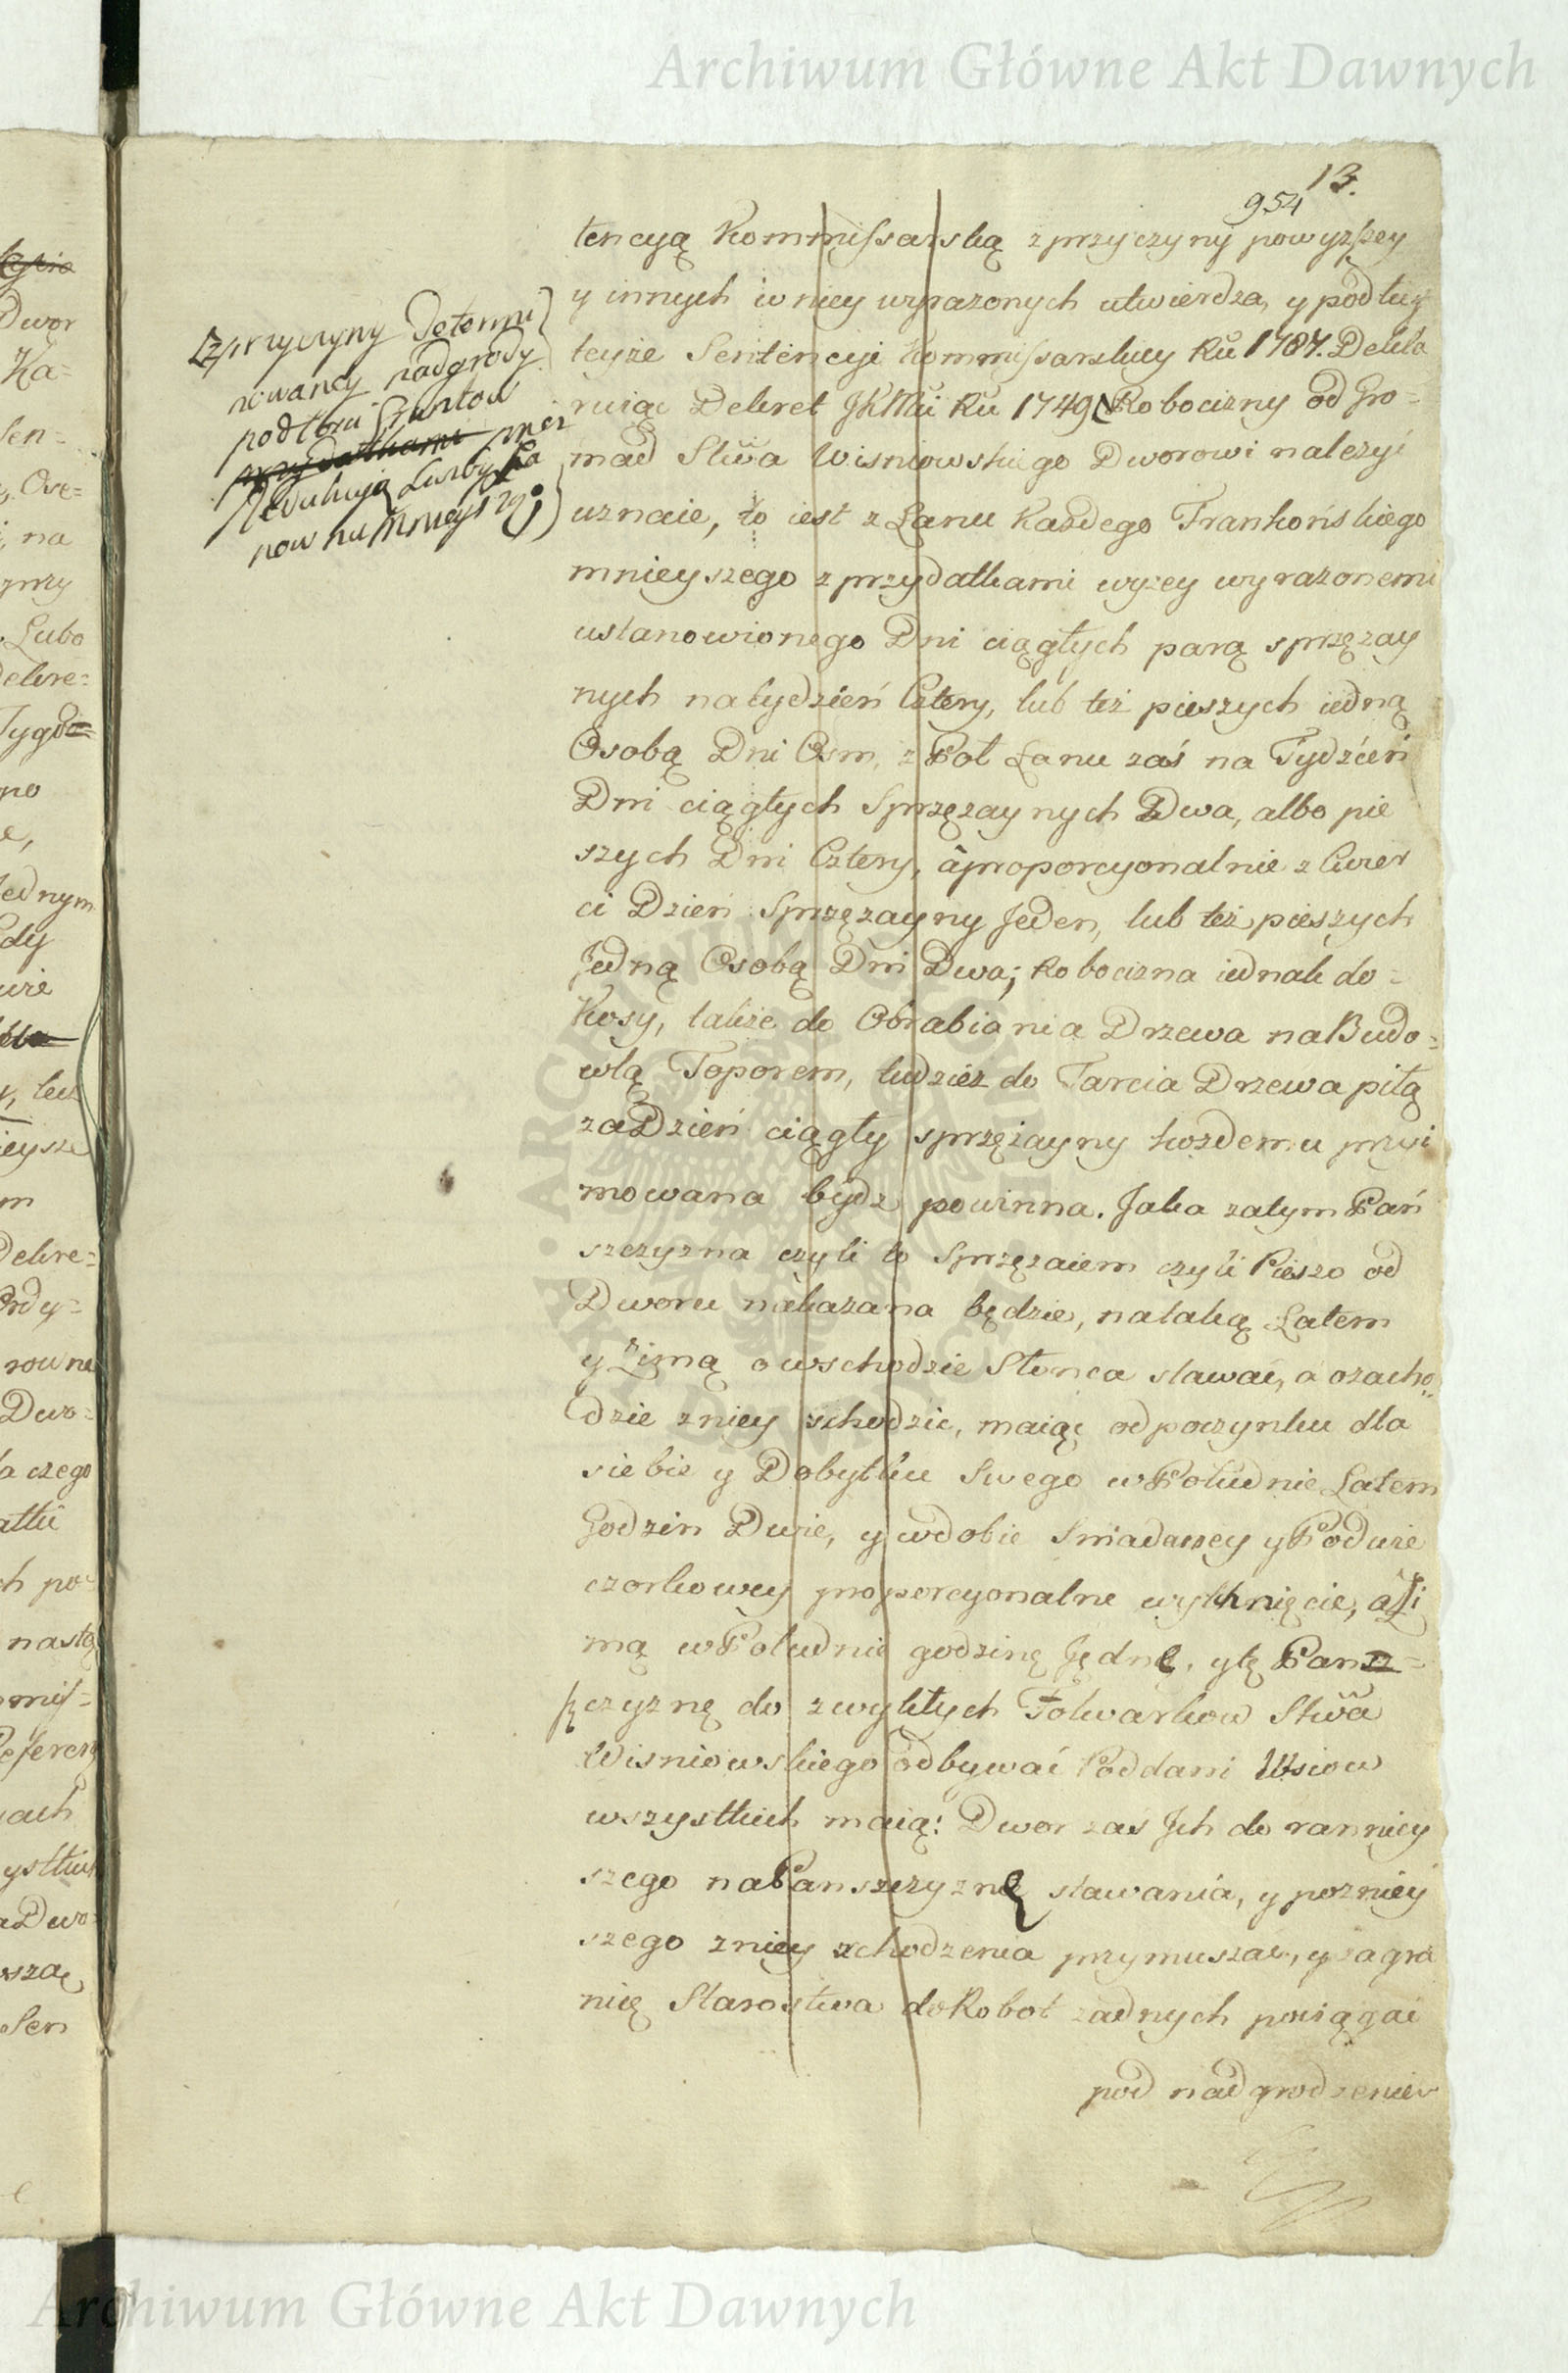 Archiwum Główne Akt Dawnych
13.
954
tencyą Kommissarską z przyczyny powyższey
y innych w niey wyrażonych utwierdza, y podług
teyże Sentencyi Kommissarskiey Ru 1787. Dekla
ruiąc Dekret JKMci Ru 1749 Robocizny od Gro=
mad Stwa Wisniowskiego Dworowi należyć
uznaie, to iest z Łanu Każdego Frankońskiego
mnieyszego z przydatkami wyżey wyrażonemi
ustanowionego Dni ciągłych parą sprzężay
nych na tydzień Cztery, lub też pieszych iedną
Osobą Dni Osm, z Poł Łanu zaś na Tydzień
Dni ciągłych Sprzężaynych Dwa, albo pie
szych Dni Cztery, a proporcyonalnie z Cwier
ci Dzień Sprzężayny Jeden, lub też pieszych
Jedną Osobą Dni Dwa; Robocizna iednak do=
Kosy, także do Obrabiania Drzewa na Budo=
wlą Toporem, tudzież do Tarcia Drzewa piłą
za Dzień ciągły sprzężayny każdemu przyi
mowana bydz powinna. Jaka zatym Pań
szczyzna czyli to Sprzężaiem czyli Pieszo od
Dworu nakazana będzie, na taką Latem
y Zimą o wschodzie Słonca stawać, a o zacho=
dzie z niey schodzić, maiąc odpoczynku dla
siebie y Dobytku Swego w Południe Latem
Godzin Dwie, y w dobie Sniadaney y Podwie
czorkowey proporcyonalne wytchnięcie, a Zi
mą w Południe godzinę Jednę, y tę Pansz=
czyznę do zwykłych Folwarkow Stwa
Wisniowskiego odbywać Poddani Wsiow
wszystkich maią: Dwor zaś Jch do ranniey
szego na Panszczyznę stawania, y pozniey
szego z niey schodzenia przymuszać, y za gra
nicę Starostwa do Robot żadnych pociągać
pod nadgrodzeniem
z przyczyny Determi
nowaney nadgrody
podłości Gruntow
przydatkami przez
Redukcyą Liczby
Archiwum Główne Akt Dawnych